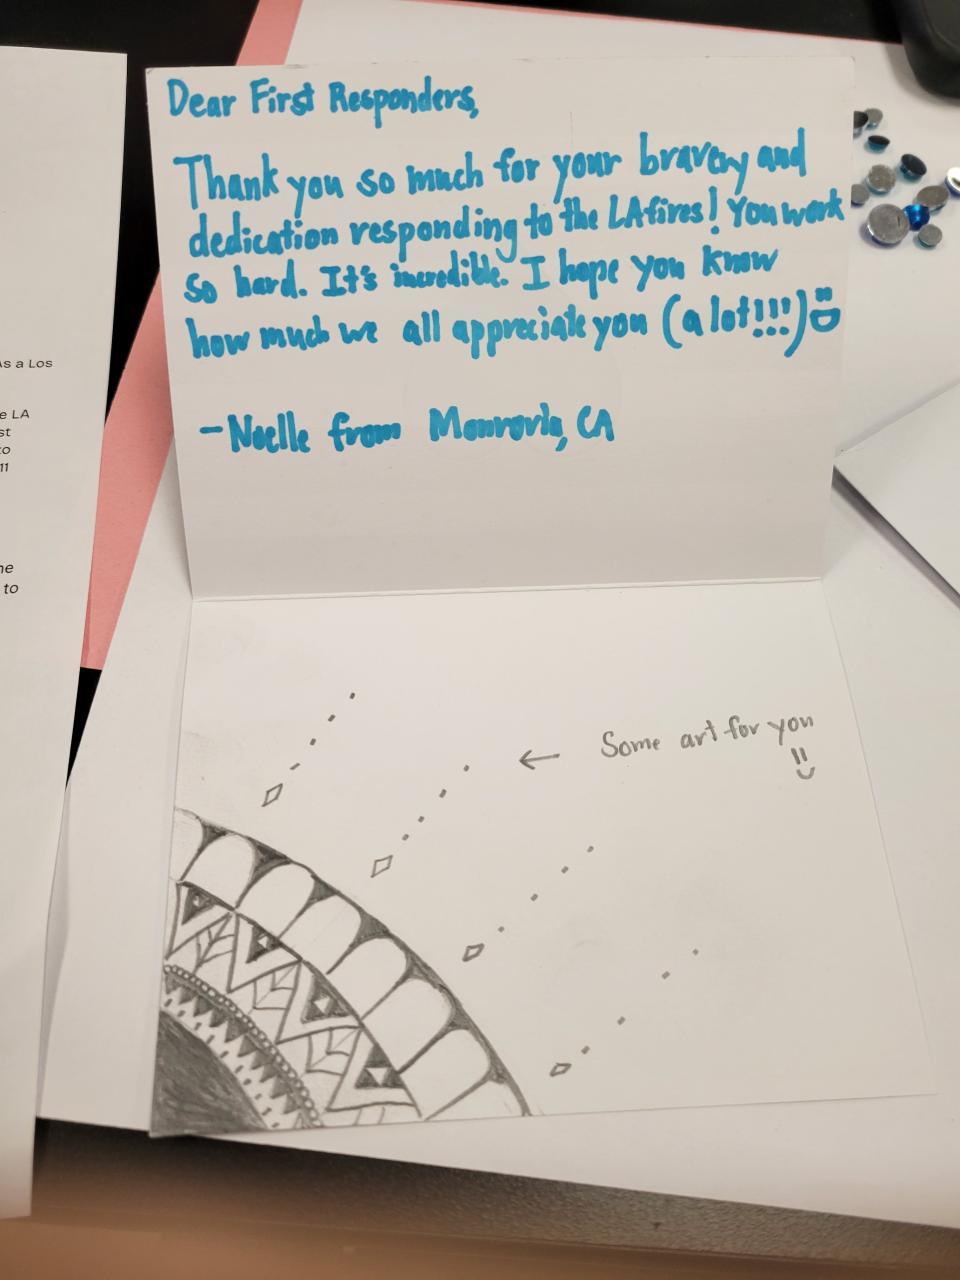 Dear First Responders,
Thank you so much for your bravery and
dedication responding to the LA fires! You work
so hard. It's incredible. I hope you know
how much we all appreciate you (a lot!!!)
-Noelle from Monrovia, CA
← Some art for you
As a Los
e LA
st
to
11
ne
to